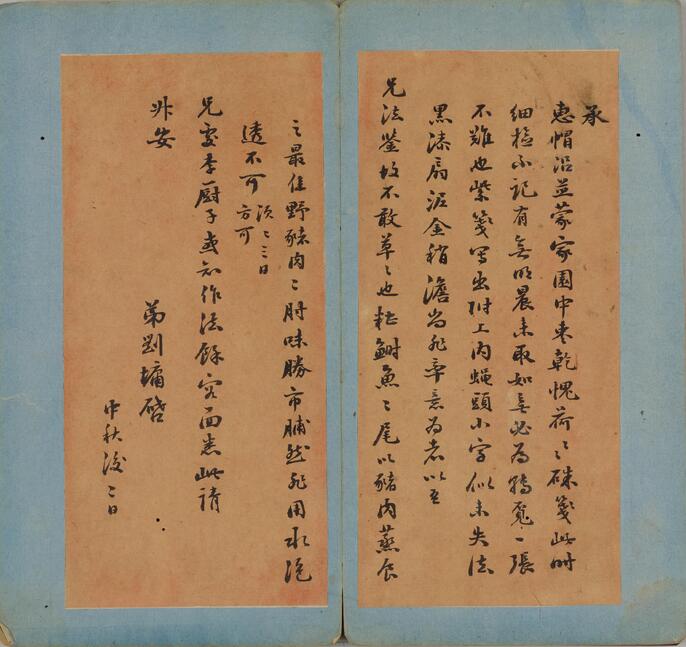 承
惠帽沿并蒙家園中棗乾愧荷〻硃箋此時
細檢不記有無明晨來取如無必為轉覓一張
不難也紫箋寫出附上內蝇頭小字似未失法
黑漆扇泥金稍澹尚非率意為者以呈
兄法鑒故不敢草〻也糟鰣魚二尾以豬肉蒸食
之最佳野豬肉二肘味勝市脯然非用水泡
透不可 須三日
方可
兄處李廚子或知作法餘容面悉此請
升安
弟劉墉啓
中秋後二日